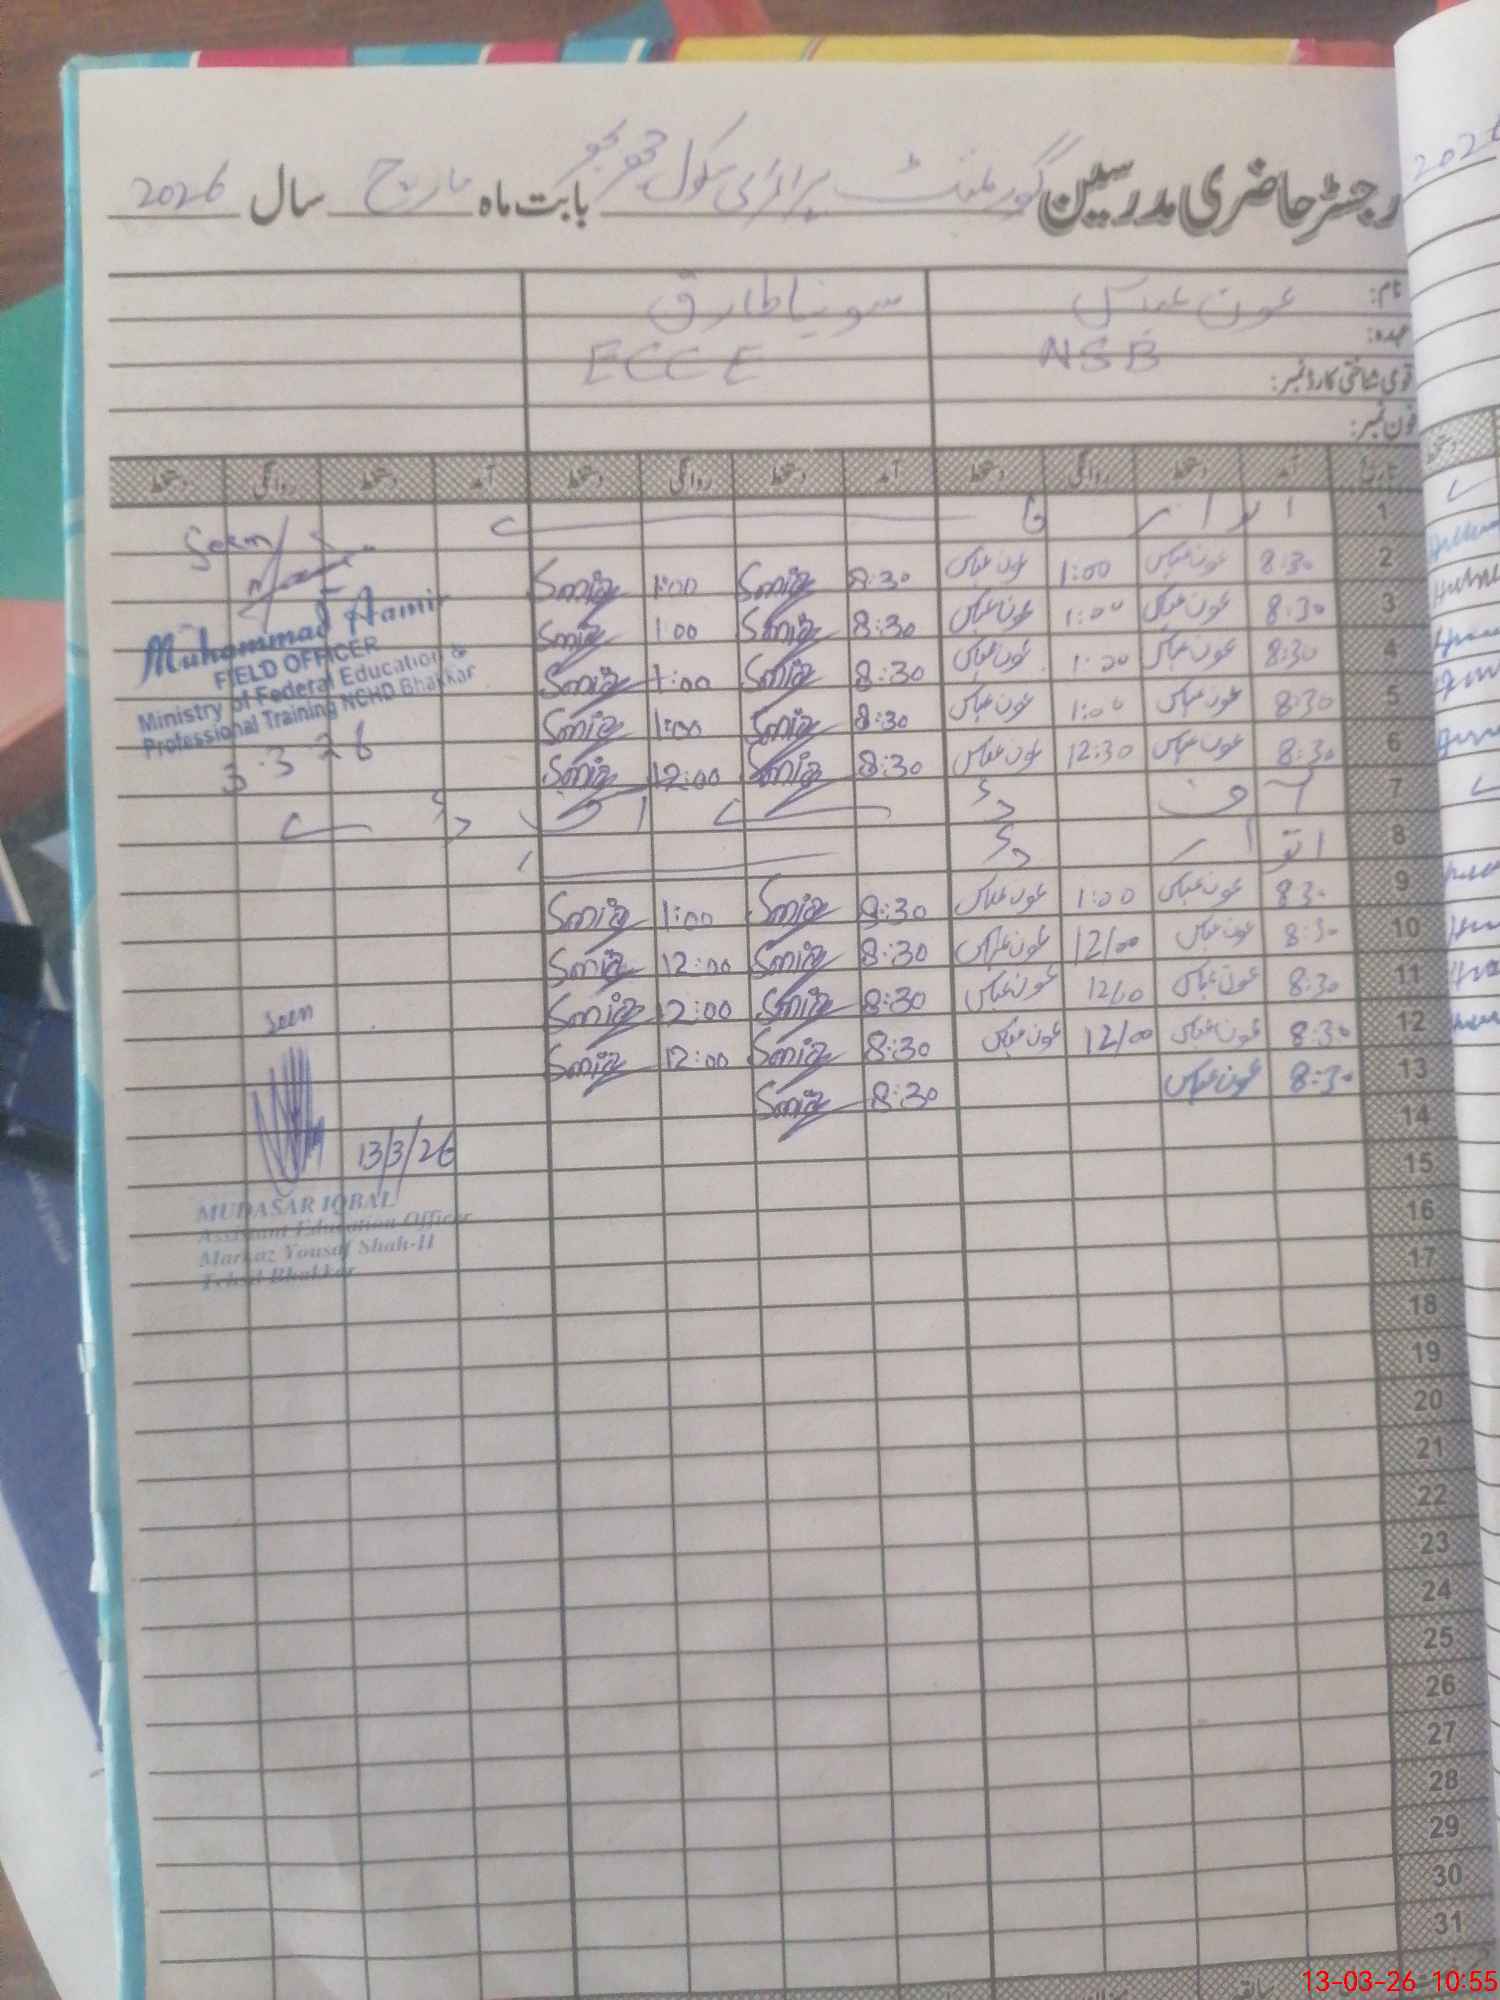 رجسٹر حاضری مدرسین گورنمنٹ پرائمری سکول بابت ماہ مارچ سال 2026
نام: عون عباس سونیا طارق
عہدہ: NSB ECCE
قومی شناختی کارڈ نمبر:
فون نمبر:
تاریخ آمد دستخط روانگی دستخط آمد دستخط روانگی دستخط آمد دستخط روانگی دستخط
1 اتوار
2 8:30 عون عباس 1:00 عون عباس 8:30 Sonia 1:00 Sonia
3 8:30 عون عباس 1:00 عون عباس 8:30 Sonia 1:00 Sonia
4 8:30 عون عباس 1:00 عون عباس 8:30 Sonia 1:00 Sonia
5 8:30 عون عباس 1:00 عون عباس 8:30 Sonia 1:00 Sonia
6 8:30 عون عباس 12:30 عون عباس 8:30 Sonia 12:00 Sonia
7
8 اتوار
9 8:30 عون عباس 1:00 عون عباس 8:30 Sonia 1:00 Sonia
10 8:30 عون عباس 12/00 عون عباس 8:30 Sonia 12:00 Sonia
11 8:30 عون عباس عون عباس 8:30 Sonia 12:00 Sonia
12 8:30 عون عباس 12/00 عون عباس 8:30 Sonia 12:00 Sonia
13 8:30 عون عباس 8:30 Sonia
14
15
16
17
18
19
20
21
22
23
24
25
26
27
28
29
30
31
Seen
Muhammad Aamir
FIELD OFFICER
Ministry of Federal Education &
Professional Training NCHD Bhakkar
3.3.26
Seen
13/3/26
MUDASAR IQBAL
Assistant Education Officer
Markaz Yousaf Shah-II
Tehsil Bhakkar
2026
13-03-26 10:55